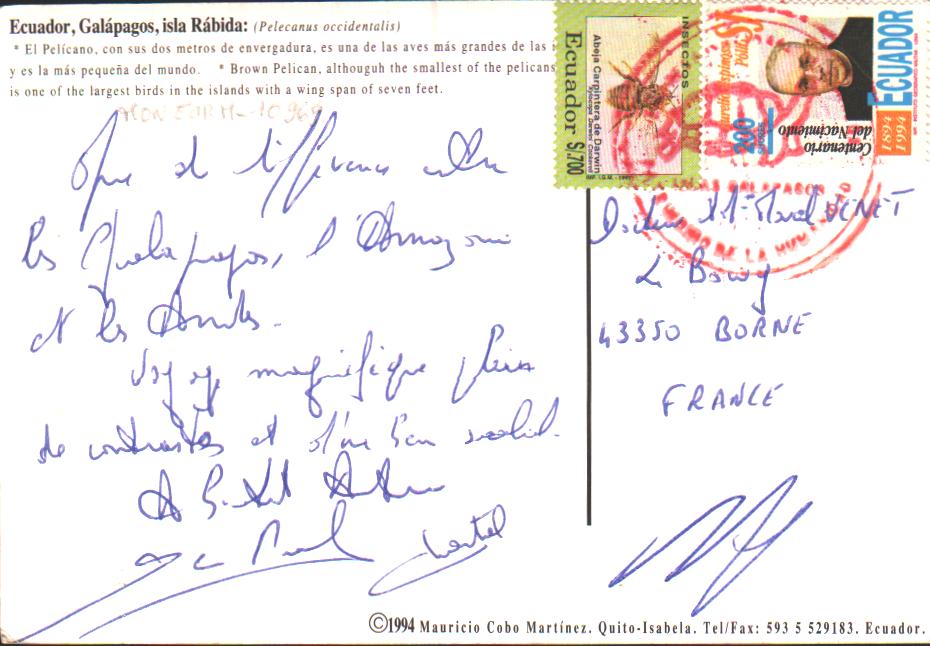 Ecuador, Galápagos, isla Rábida: (Pelecanus occidentalis)
* El Pelícano, con sus dos metros de envergadura, es una de las aves más grandes de las i
y es la más pequeña del mundo. * Brown Pelican, althouguh the smallest of the pelicans
is one of the largest birds in the islands with a wing span of seven feet.
Que de différences entre
les Galapagos, l'Amazonie
et les Andes.
Voyage magnifique plein
de contrastes et d'un bon
A Bientôt
INSECTOS
Abeja Carpintera de Darwin
Xylocopa Darwini Cockerell
Ecuador S/.700
ECUADOR
1894 1994
Centenario
del Nacimiento
200
LA HUM
VENET
Le Bourg
43350 BORNE
FRANCE
©1994 Mauricio Cobo Martínez. Quito-Isabela. Tel/Fax: 593 5 529183. Ecuador.